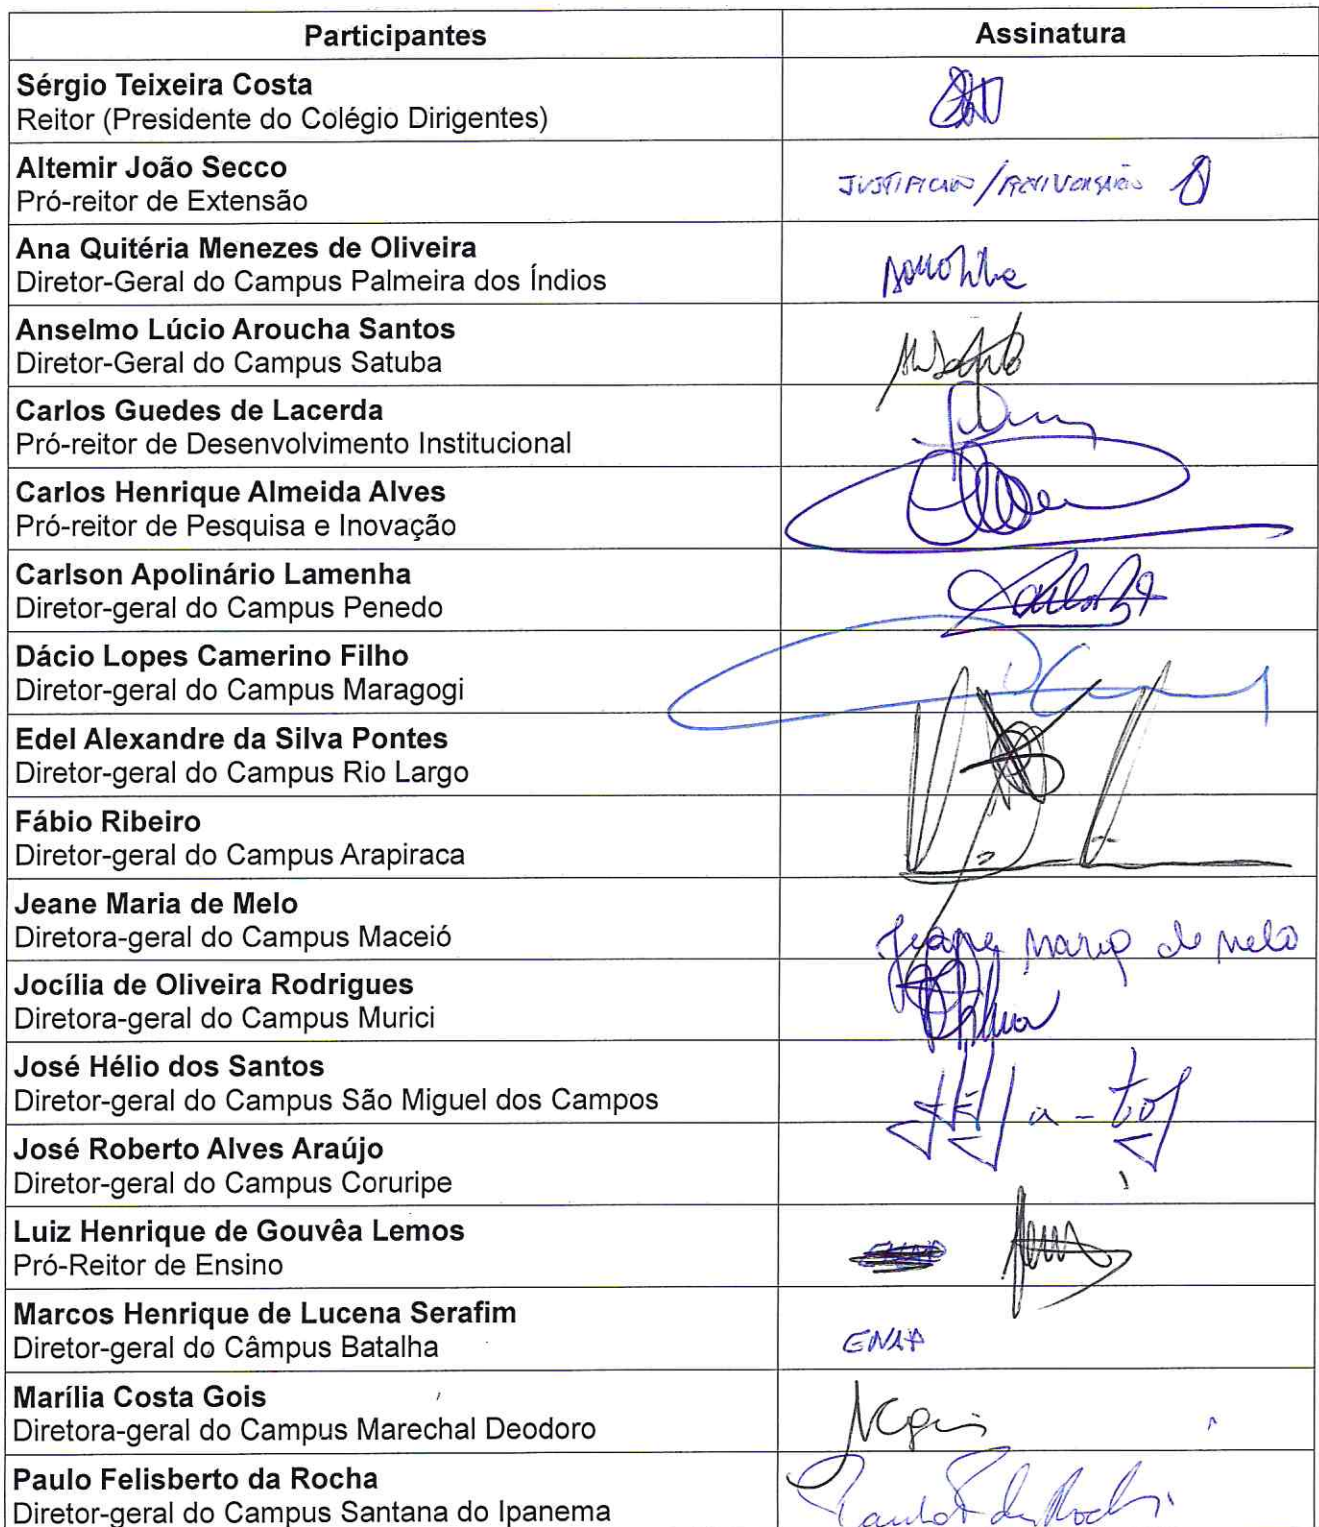 Participantes Assinatura
Sérgio Teixeira Costa
Reitor (Presidente do Colégio Dirigentes)
Altemir João Secco
Pró-reitor de Extensão
Ana Quitéria Menezes de Oliveira
Diretor-Geral do Campus Palmeira dos Índios
Anselmo Lúcio Aroucha Santos
Diretor-Geral do Campus Satuba
Carlos Guedes de Lacerda
Pró-reitor de Desenvolvimento Institucional
Carlos Henrique Almeida Alves
Pró-reitor de Pesquisa e Inovação
Carlson Apolinário Lamenha
Diretor-geral do Campus Penedo
Dácio Lopes Camerino Filho
Diretor-geral do Campus Maragogi
Edel Alexandre da Silva Pontes
Diretor-geral do Campus Rio Largo
Fábio Ribeiro
Diretor-geral do Campus Arapiraca
Jeane Maria de Melo
Diretora-geral do Campus Maceió
Jeane Maria de Melo
Jocília de Oliveira Rodrigues
Diretora-geral do Campus Murici
José Hélio dos Santos
Diretor-geral do Campus São Miguel dos Campos
José Roberto Alves Araújo
Diretor-geral do Campus Coruripe
Luiz Henrique de Gouvêa Lemos
Pró-Reitor de Ensino
Marcos Henrique de Lucena Serafim
Diretor-geral do Câmpus Batalha
ENAP
Marília Costa Gois
Diretora-geral do Campus Marechal Deodoro
Paulo Felisberto da Rocha
Diretor-geral do Campus Santana do Ipanema